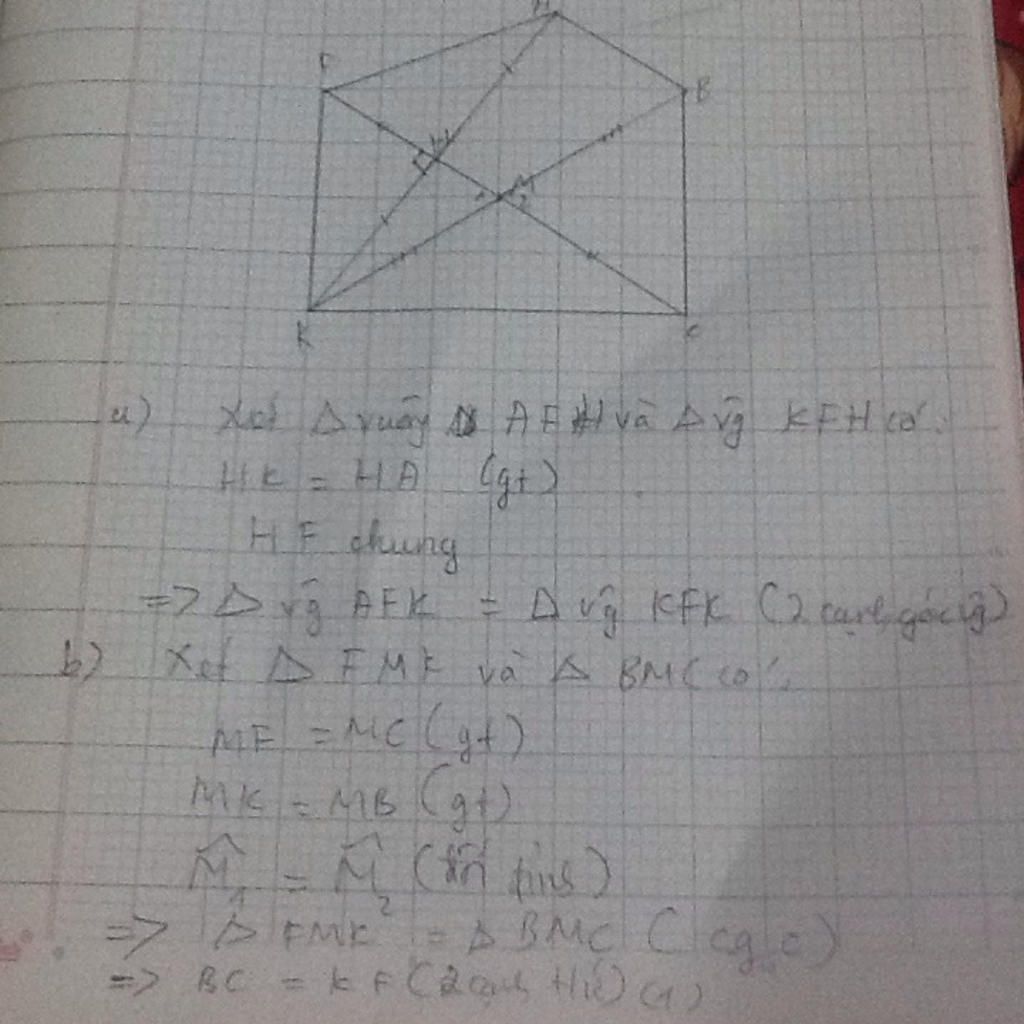 F
B
H
M
K
C
a) Xét Δ vuông AFH và Δ vg KFH có:
HK = HA (gt)
HF chung
=> Δ vg AFK = Δ vg KFK (2 cạnh góc vg)
b) Xét Δ FMK và Δ BMC có:
MF = MC (gt)
MK = MB (gt)
M̂1 = M̂2 (đối đỉnh)
=> Δ FMK = Δ BMC (cgc)
=> BC = KF (2 cạnh t/ư) (1)